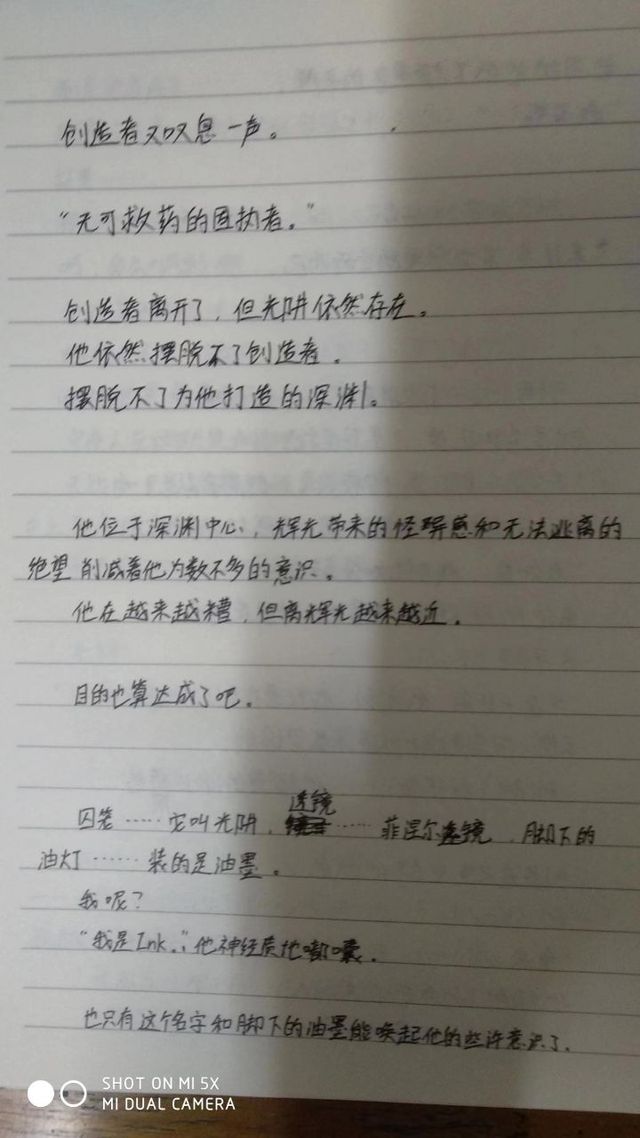 创造者又叹息一声。
“无可救药的固执者。”
创造者离开了，但光阱依然存在。
他依然摆脱不了创造者。
摆脱不了为他打造的深渊。
他位于深渊中心，辉光带来的怪异感和无法逃离的
绝望削减着他为数不多的意识。
他在越来越糟，但离辉光越来越近。
目的也算达成了吧。
透镜
囚笼……它叫光阱，……菲涅尔透镜，脚下的
油灯……装的是油墨。
我呢？
“我是Ink。”他神经质地嘟囔。
也只有这个名字和脚下的油墨能唤起他的些许意识了。
SHOT ON MI 5X
MI DUAL CAMERA